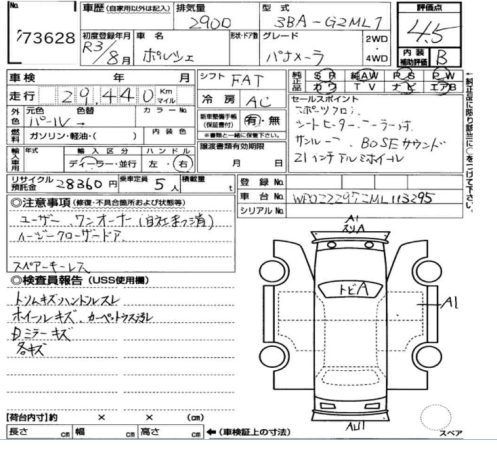 No.
73628
車歴 (自家用以外は記入)
排気量 2900
型式 3BA-G2ML1
評価点 4.5
内装補助評価 B
初度登録年月 R3/8月
車名 ポルシェ
形状・ドア数
グレード パナメーラ
2WD・4WD
車検 年 月
走行 29,440 Km マイル
シフト FAT
冷房 AC
純正品 SR 純AW PS PW
カワ TV ナビ エアB
外色 元色 パール 色替
カラーNo.
内装色
燃料 ガソリン・軽油・( )
新車整備手帳(保証書付) 有・無
※書類と一緒に保管して下さい。
譲渡書類有効期限 月 日
輸入車用 年式 輸入区分 ディーラー・並行 ハンドル 左・右
セールスポイント
スポーツクロノ
シートヒーター、クーラー付
サンルーフ BOSEサウンド
21インチアルミホイール
←純正品に限り該当に○をつけて下さい。
リサイクル預託金 28360円
乗車定員 5人
積載量 t
登録No.
車台No. WP0ZZZ97ZML113295
シリアルNo.
◎注意事項 (修復・不具合箇所および状態等)
ユーザー、ワンオーナー(自社まっ消)
イージークローザードア
スペアキーレス
◎検査員報告 (USS使用欄)
トリムキズハンドルスレ
ホイールキズ、カーペットウス汚れ
Dミラーキズ
各キズ
A1
スリA
トビA
A1
AU1
【荷台内寸】約 × × (cm)
長さ cm 幅 cm 高さ cm
←(車検証上の寸法)
スペア